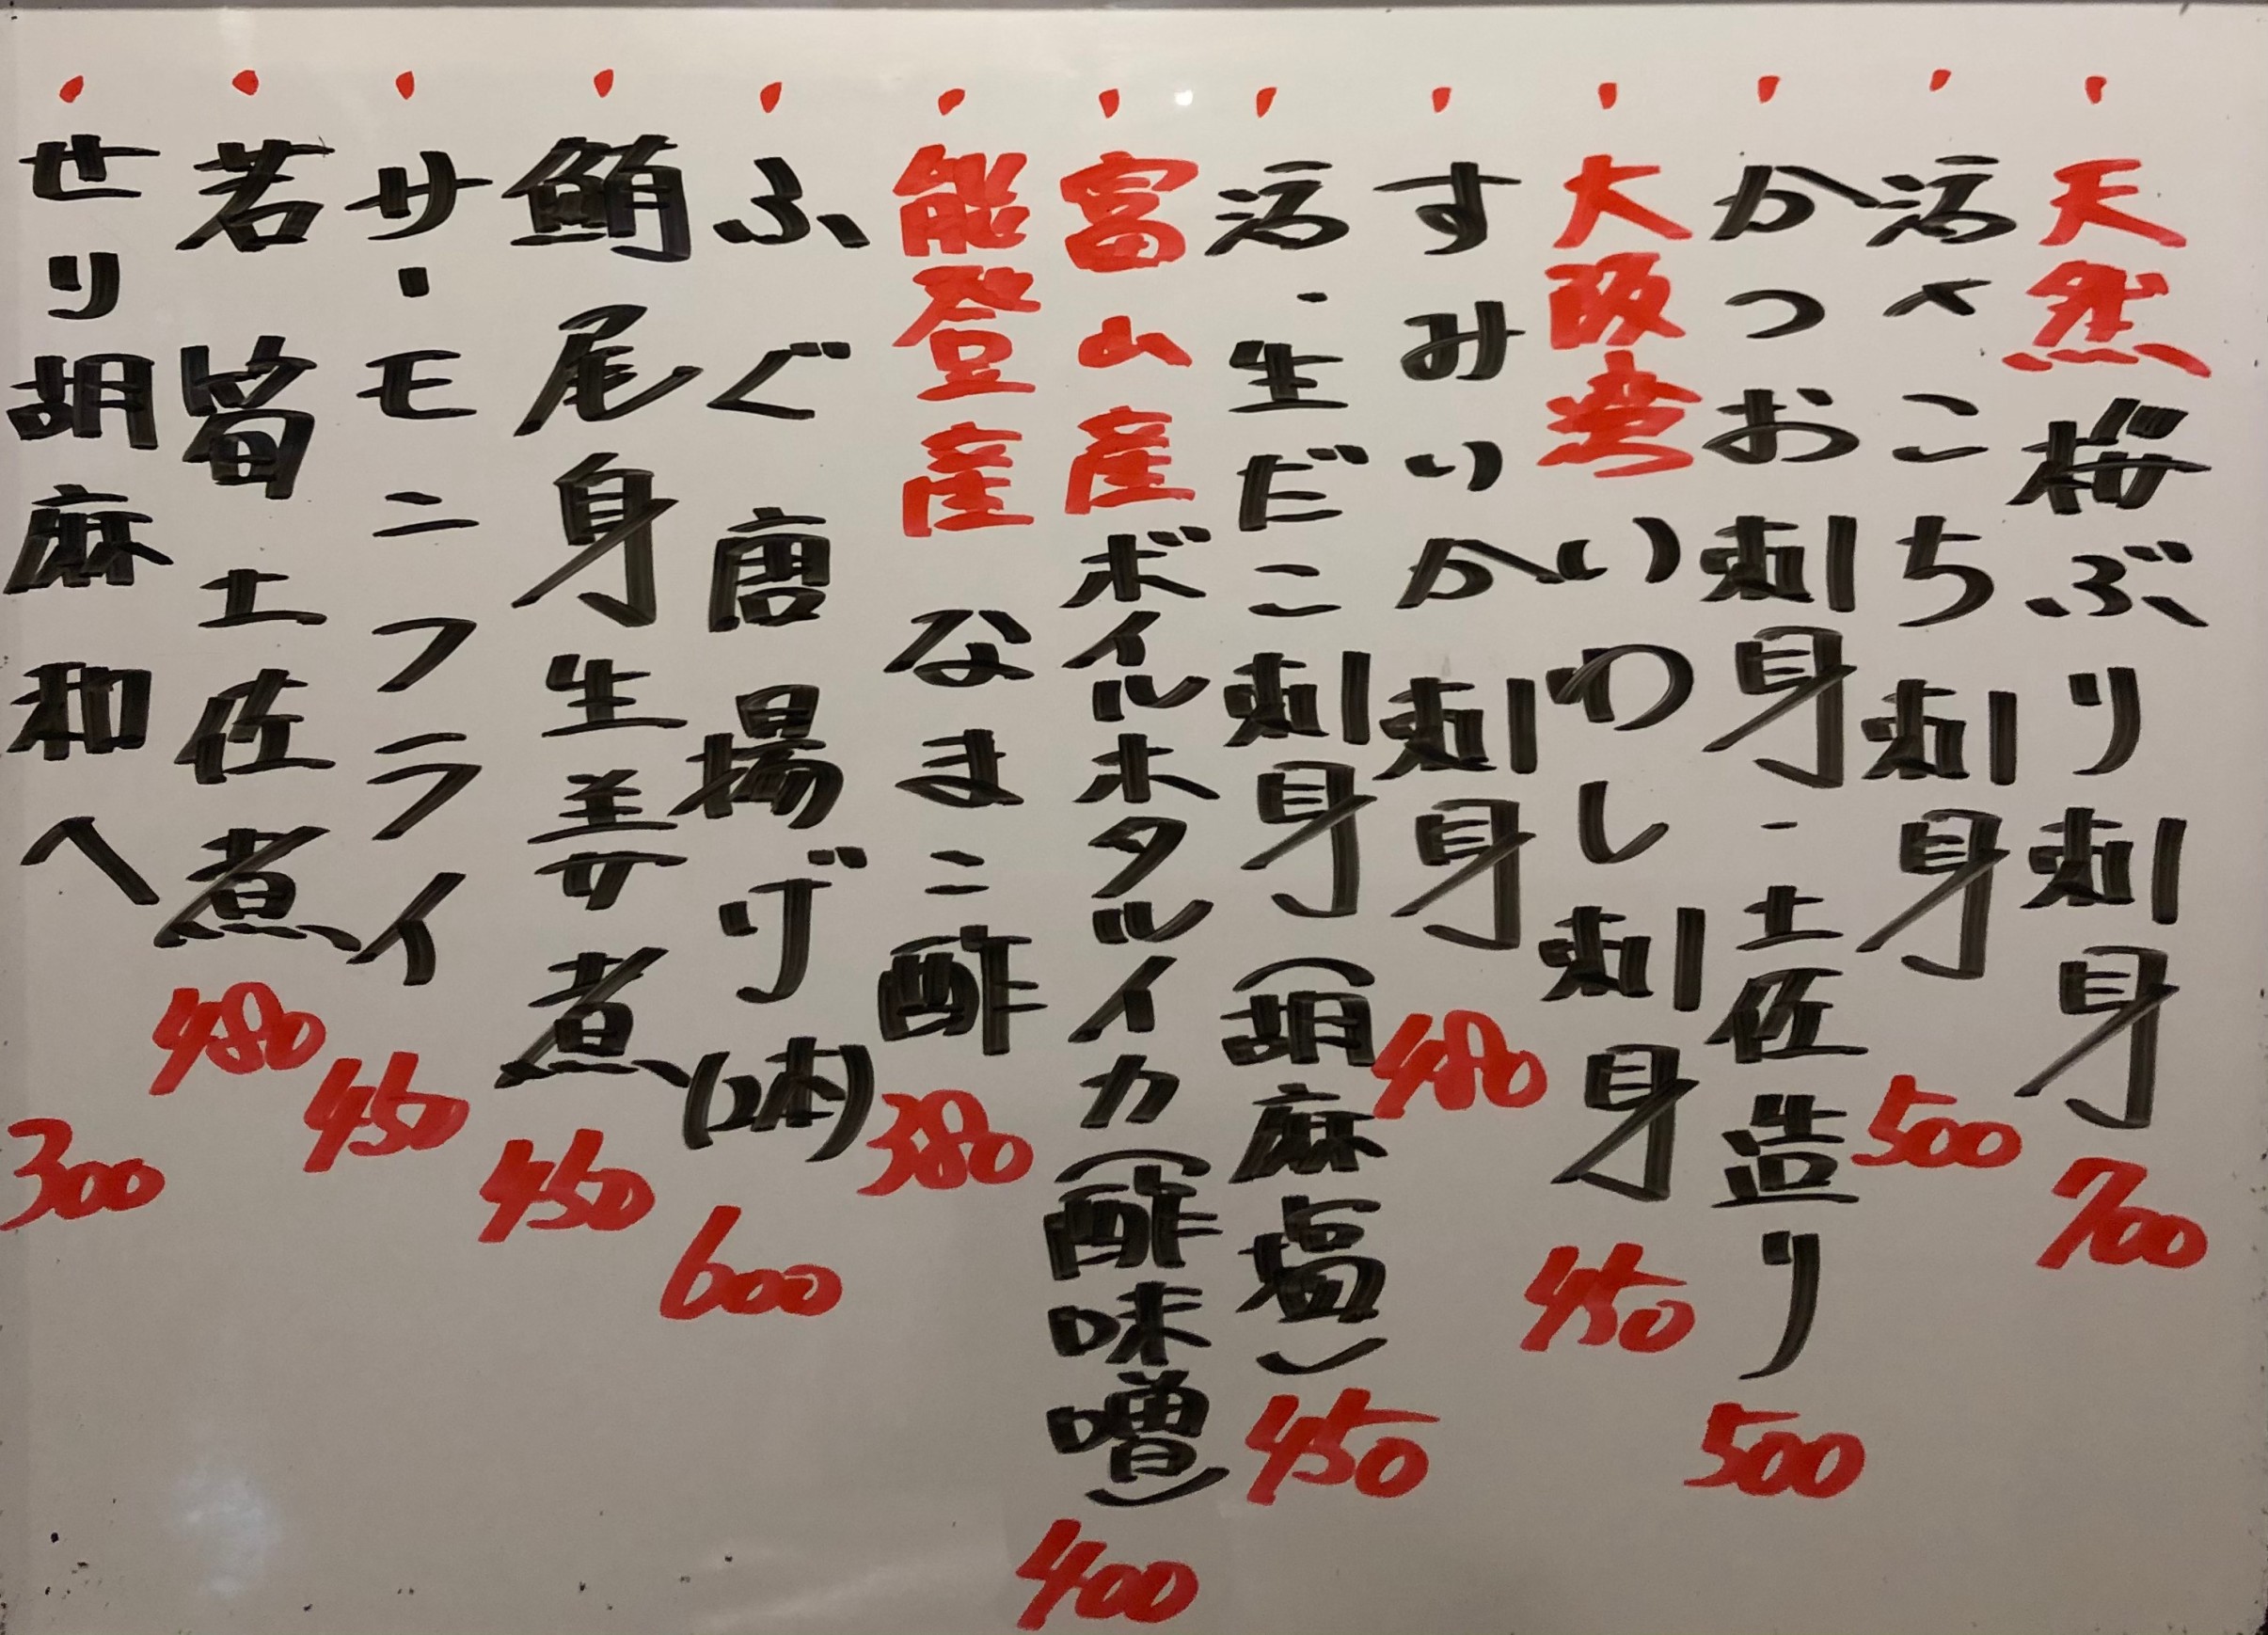 ・天然桜ぶり刺身 700
・活〆こち刺身 500
・かつお刺身・土佐造り 500
・大阪湾いわし刺身 450
・すみいか刺身 480
・活・生だこ刺身(胡麻塩) 450
・富山産ボイルホタルイカ(酢味噌) 400
・能登産なまこ酢 380
・ふぐ唐揚げ(2本) 600
・鮪尾身生姜煮 450
・サ・モニフライ 450
・若筍土佐煮 480
・せり胡麻和へ 300